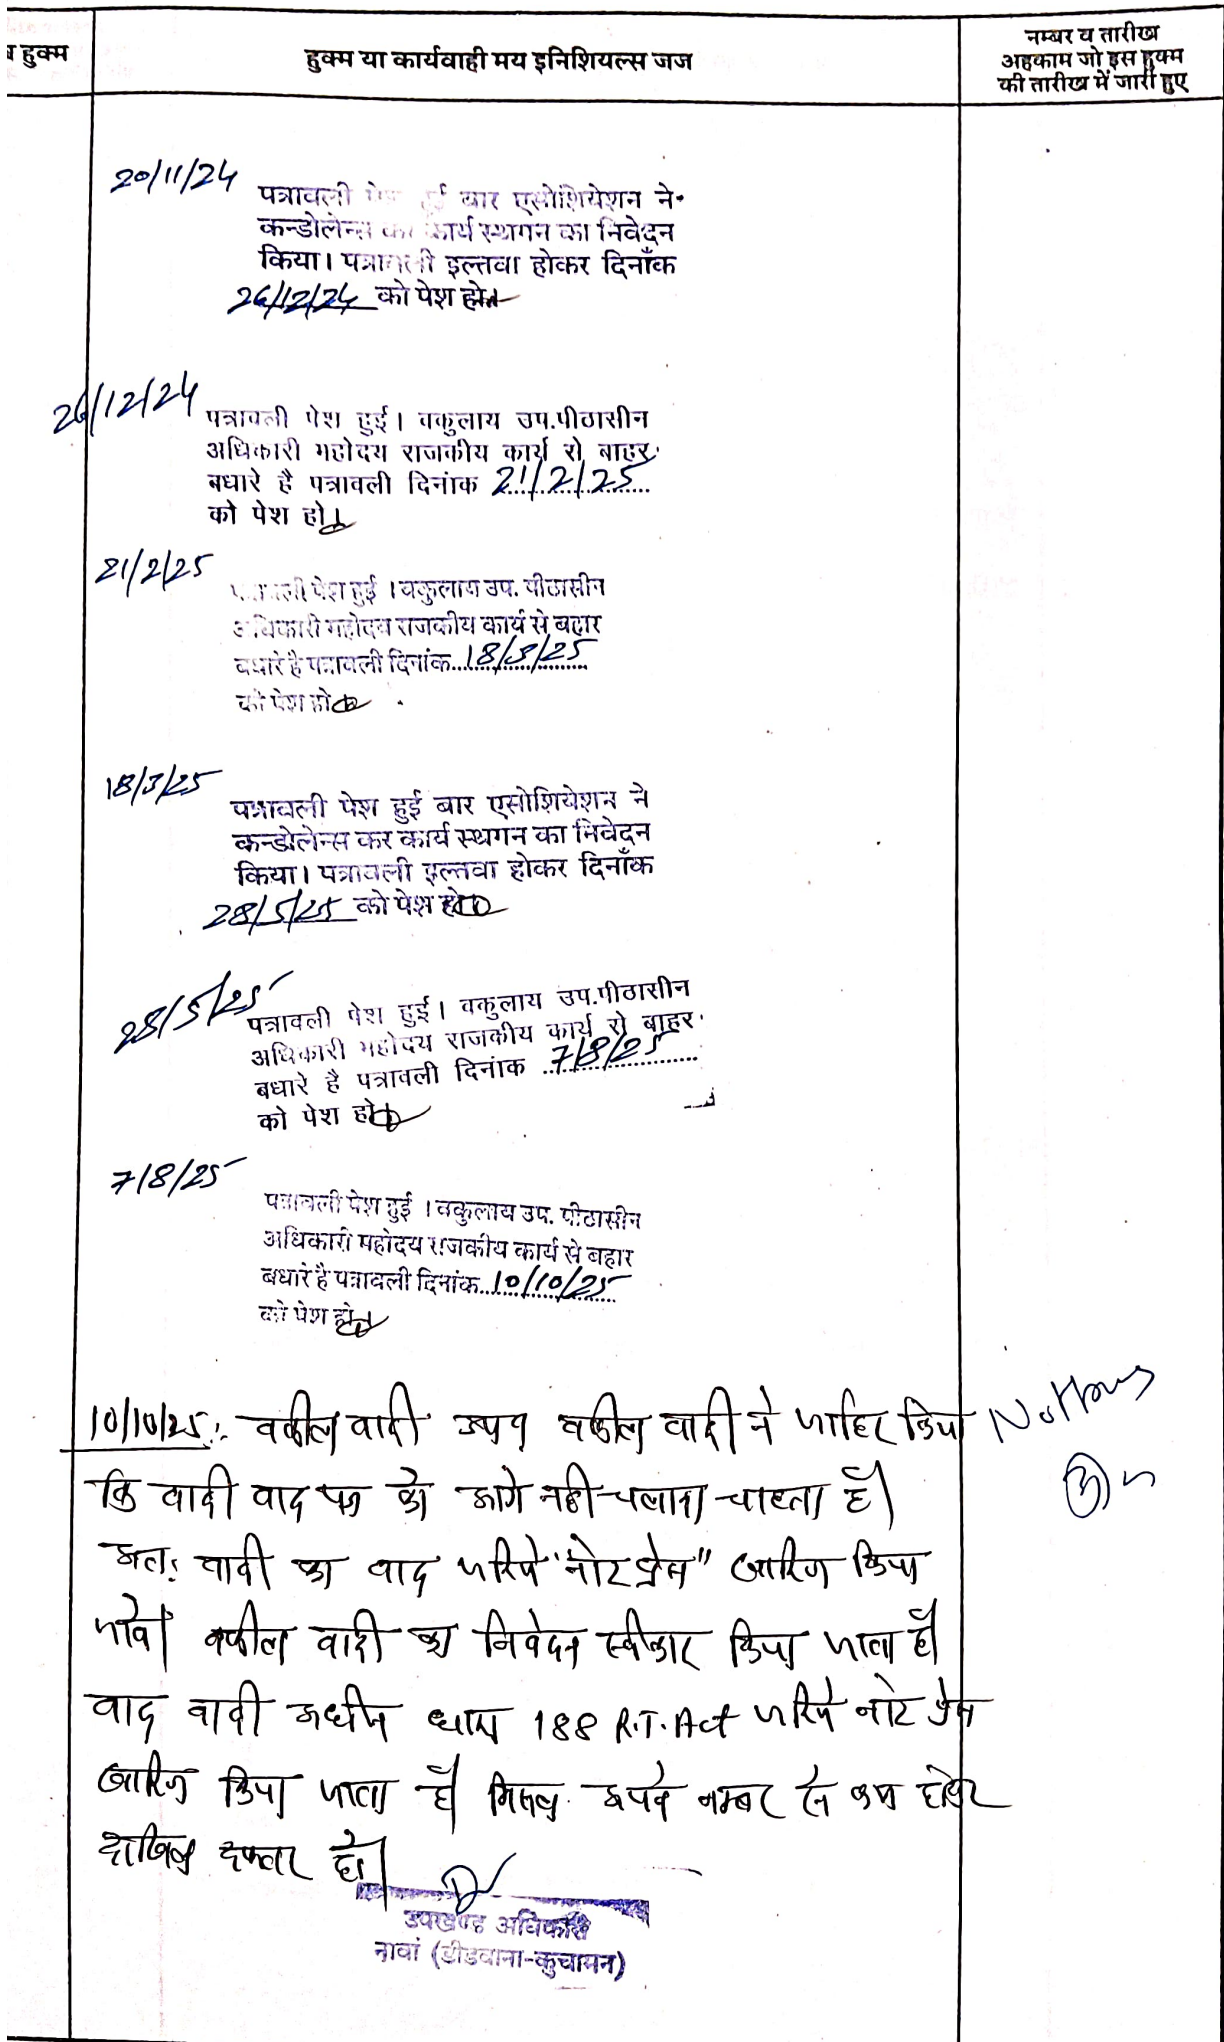 व हुक्म
हुक्म या कार्यवाही मय इनिशियल्स जज
नम्बर व तारीख
अहकाम जो इस हुक्म
की तारीख में जारी हुए
20/11/24
पत्रावली पेश हुई बार एसोशियेशन ने
कन्डोलेन्स कर कार्य स्थगन का निवेदन
किया। पत्रावली इल्तवा होकर दिनाँक
26/12/24 को पेश हो
26/12/24
पत्रावली पेश हुई। वकुलाय उप.पीठासीन
अधिकारी महोदय राजकीय कार्य से बाहर
बधारे है पत्रावली दिनांक 21/2/25
को पेश हो
21/2/25
पत्रावली पेश हुई । वकुलाय उप. पीठासीन
अधिकारी महोदय राजकीय कार्य से बहार
बधारे है पत्रावली दिनांक 18/3/25
को पेश हो
18/3/25
पत्रावली पेश हुई बार एसोशियेशन ने
कन्डोलेन्स कर कार्य स्थगन का निवेदन
किया। पत्रावली इल्तवा होकर दिनाँक
28/5/25 को पेश हो
28/5/25
पत्रावली पेश हुई। वकुलाय उप.पीठासीन
अधिकारी महोदय राजकीय कार्य से बाहर
बधारे है पत्रावली दिनांक 7/8/25
को पेश हो
7/8/25
पत्रावली पेश हुई । वकुलाय उप. पीठासीन
अधिकारी महोदय राजकीय कार्य से बहार
बधारे है पत्रावली दिनांक 10/10/25
को पेश हो
10/10/25:- वकील वादी उप० वकील वादी ने जाहिर किया
कि वादी वाद पत्र को आगे नही चलाना चाहता है।
अतः वादी का वाद जरिये "नोट प्रेस" खारिज किया
जावे। वकील वादी का निवेदन स्वीकार किया जाता है।
वाद वादी अधीन धारा 188 R.T. Act जरिये नोट प्रेस
खारिज किया जाता है। मिसल नम्बर से कम होकर
दाखिल दफ्तर हो।
उपखण्ड अधिकारी
नावां (डीडवाना-कुचामन)